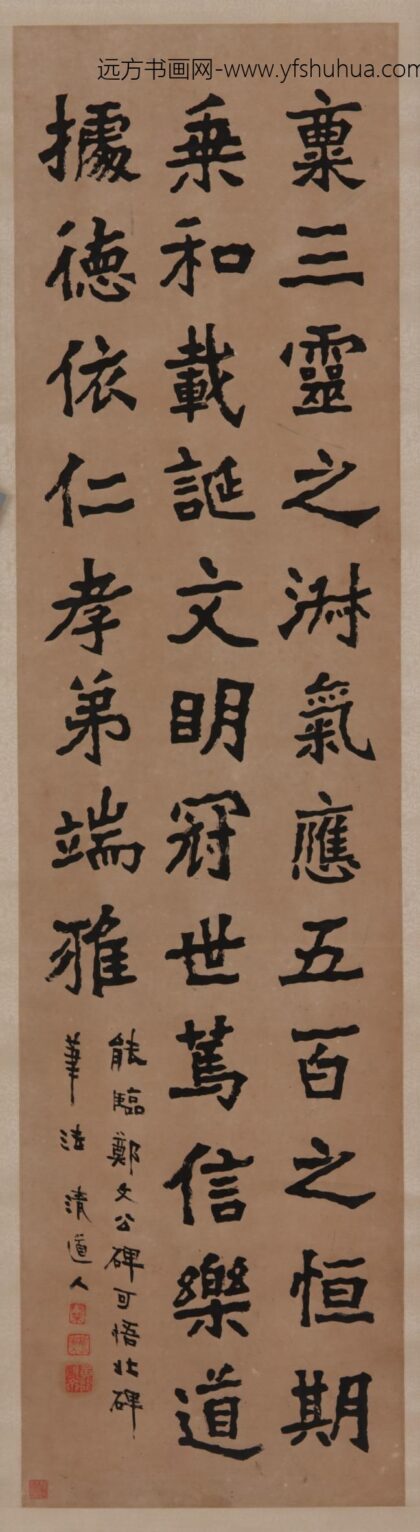 远方书画网-www.yfshuhua.com
稟三靈之淑氣應五百之恒期
乘和載誕文明冠世篤信樂道
據德依仁孝弟端雅
能臨鄭文公碑可悟北碑
筆法 清道人